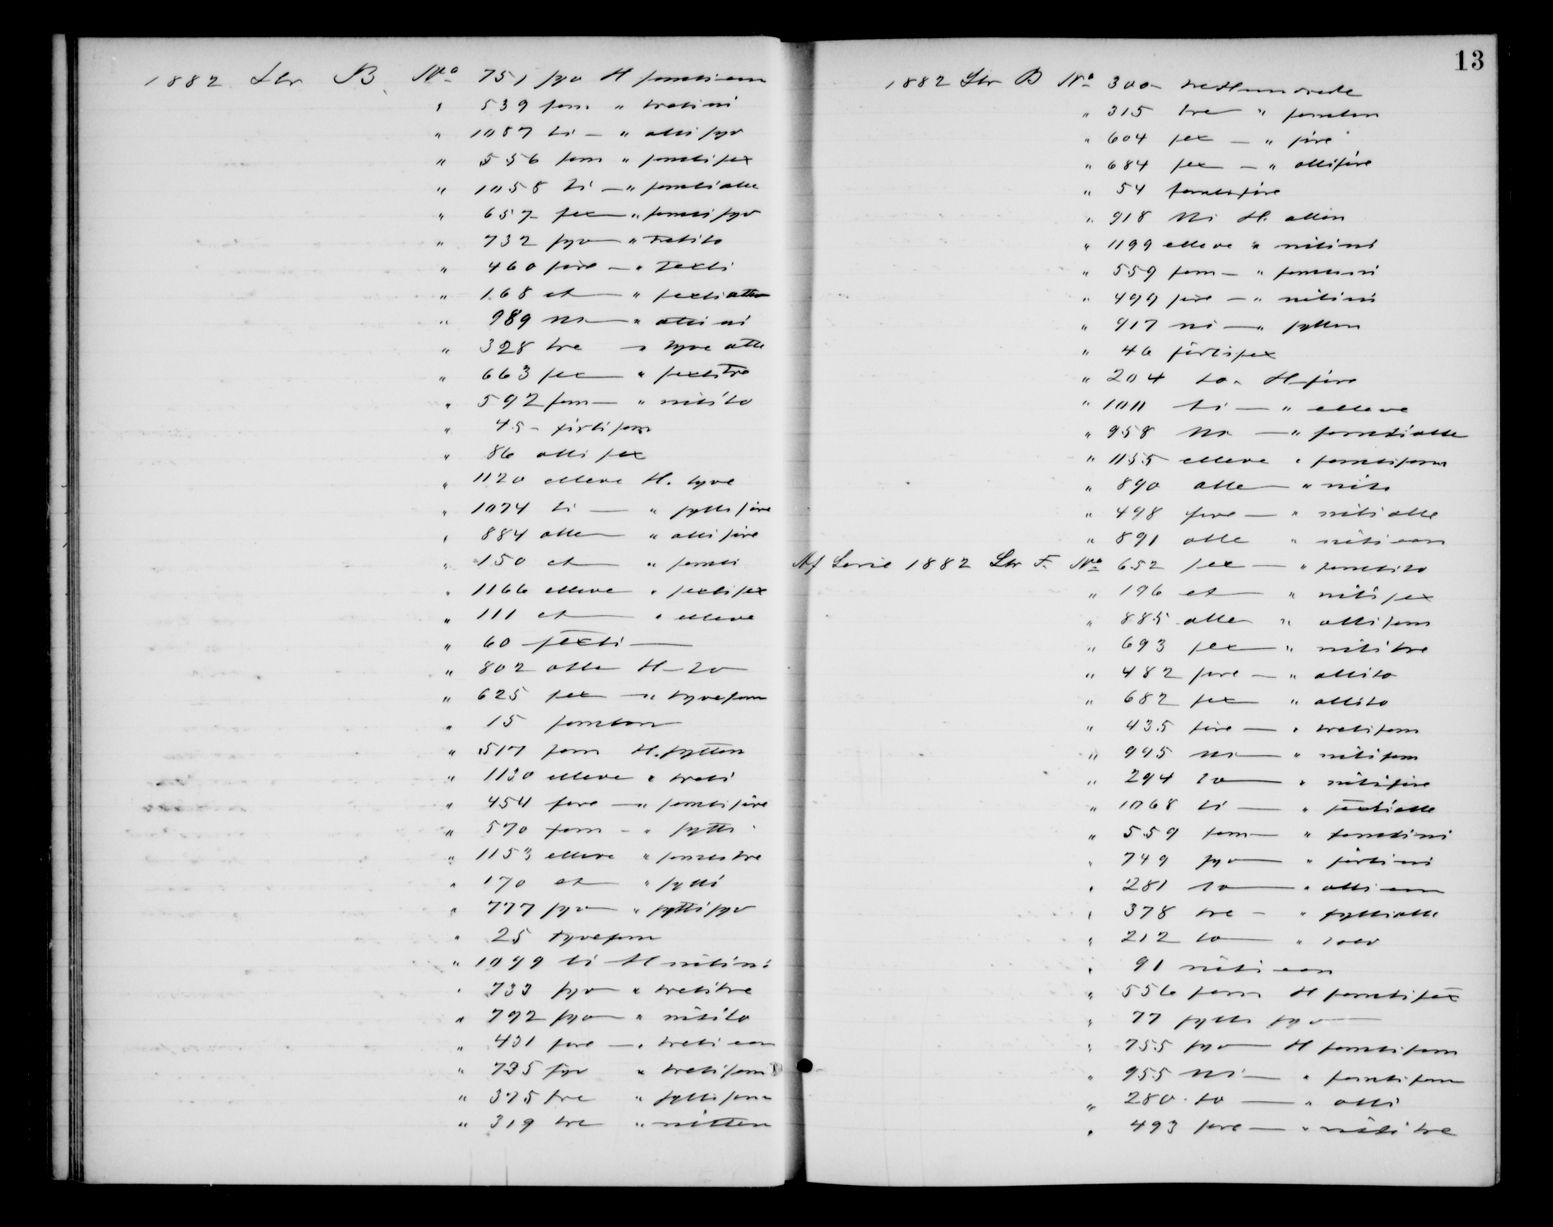 1882 Ltr B. No 751 syv H femtien
" 539 fem " tretini
" 1087 ti — " otti syv
" 556 fem " femtisex
" 1058 ti — " femtiotte
" 657 sex — " femtisyv
" 732 syv — " tretito
" 460 fire — " sexti
" 168 et — " sextiotte
" 989 ni — " ottini
" 328 tre — " tyve otte
" 663 sex — " sextitre
" 592 fem — " nitito
" 45 - førtifem
" 86 otti sex
" 1120 elleve H. tyve
" 1074 ti — " sytti fire
" 884 otte — " otti fire
" 150 et — " femti
" 1166 elleve " sextisex
" 111 et — " elleve
" 60 sexti —
" 802 otte H - to
" 625 sex — " tyvefem
" 15 femten
" 517 fem H. sytten
" 1130 elleve " treti
" 454 fire — " femtifire
" 570 fem — " sytti
" 1153 elleve " femtitre
" 170 et — " sytti
" 777 syv — " syttisyv
" 25 tyvefem
" 1099 ti H nitini
" 733 syv " tretitre
" 792 syv — " nitito
" 431 fire — " tretien
" 735 syv " tretifem
" 375 tre " syttifem
" 319 tre " nitten
13
1882 Ltr B No 300 - treHundrede
" 315 tre " femten
" 604 sex — " fire
" 684 sex — " ottifire
" 54 femtifire
" 918 Ni H. atten
" 1199 elleve " nitini
" 559 fem — " femtini
" 499 fire — " nitini
" 917 ni — " sytten
" 46 førtisex
" 204 to " H fire
" 1011 ti — " elleve
" 958 Ni — " femtiotte
" 1155 elleve " femtifem
" 890 otte — " niti
" 498 fire — " nitiotte
" 891 otte " nitien
Serie 1882 Ltr F. No 652 sex — " femtito
" 196 et — " nitisex
" 885 otte " ottifem
" 693 sex — " nititre
" 482 fire — " ottito
" 682 sex " ottito
" 435 fire — " tretifem
" 995 ni — " nitifem
" 294 to — " nitifire
" 1068 ti — " sextiotte
" 559 fem — " femtini
" 749 syv — " førtini
" 281 to — " ottien
" 378 tre — " syttiotte
" 212 to — " tolv
" 91 nitien
" 556 fem H femtisex
" 77 sytti syv —
" 755 syv — H femtifem
" 955 Ni — " femtifem
" 280 to — " otti
" 493 fire — " nititre